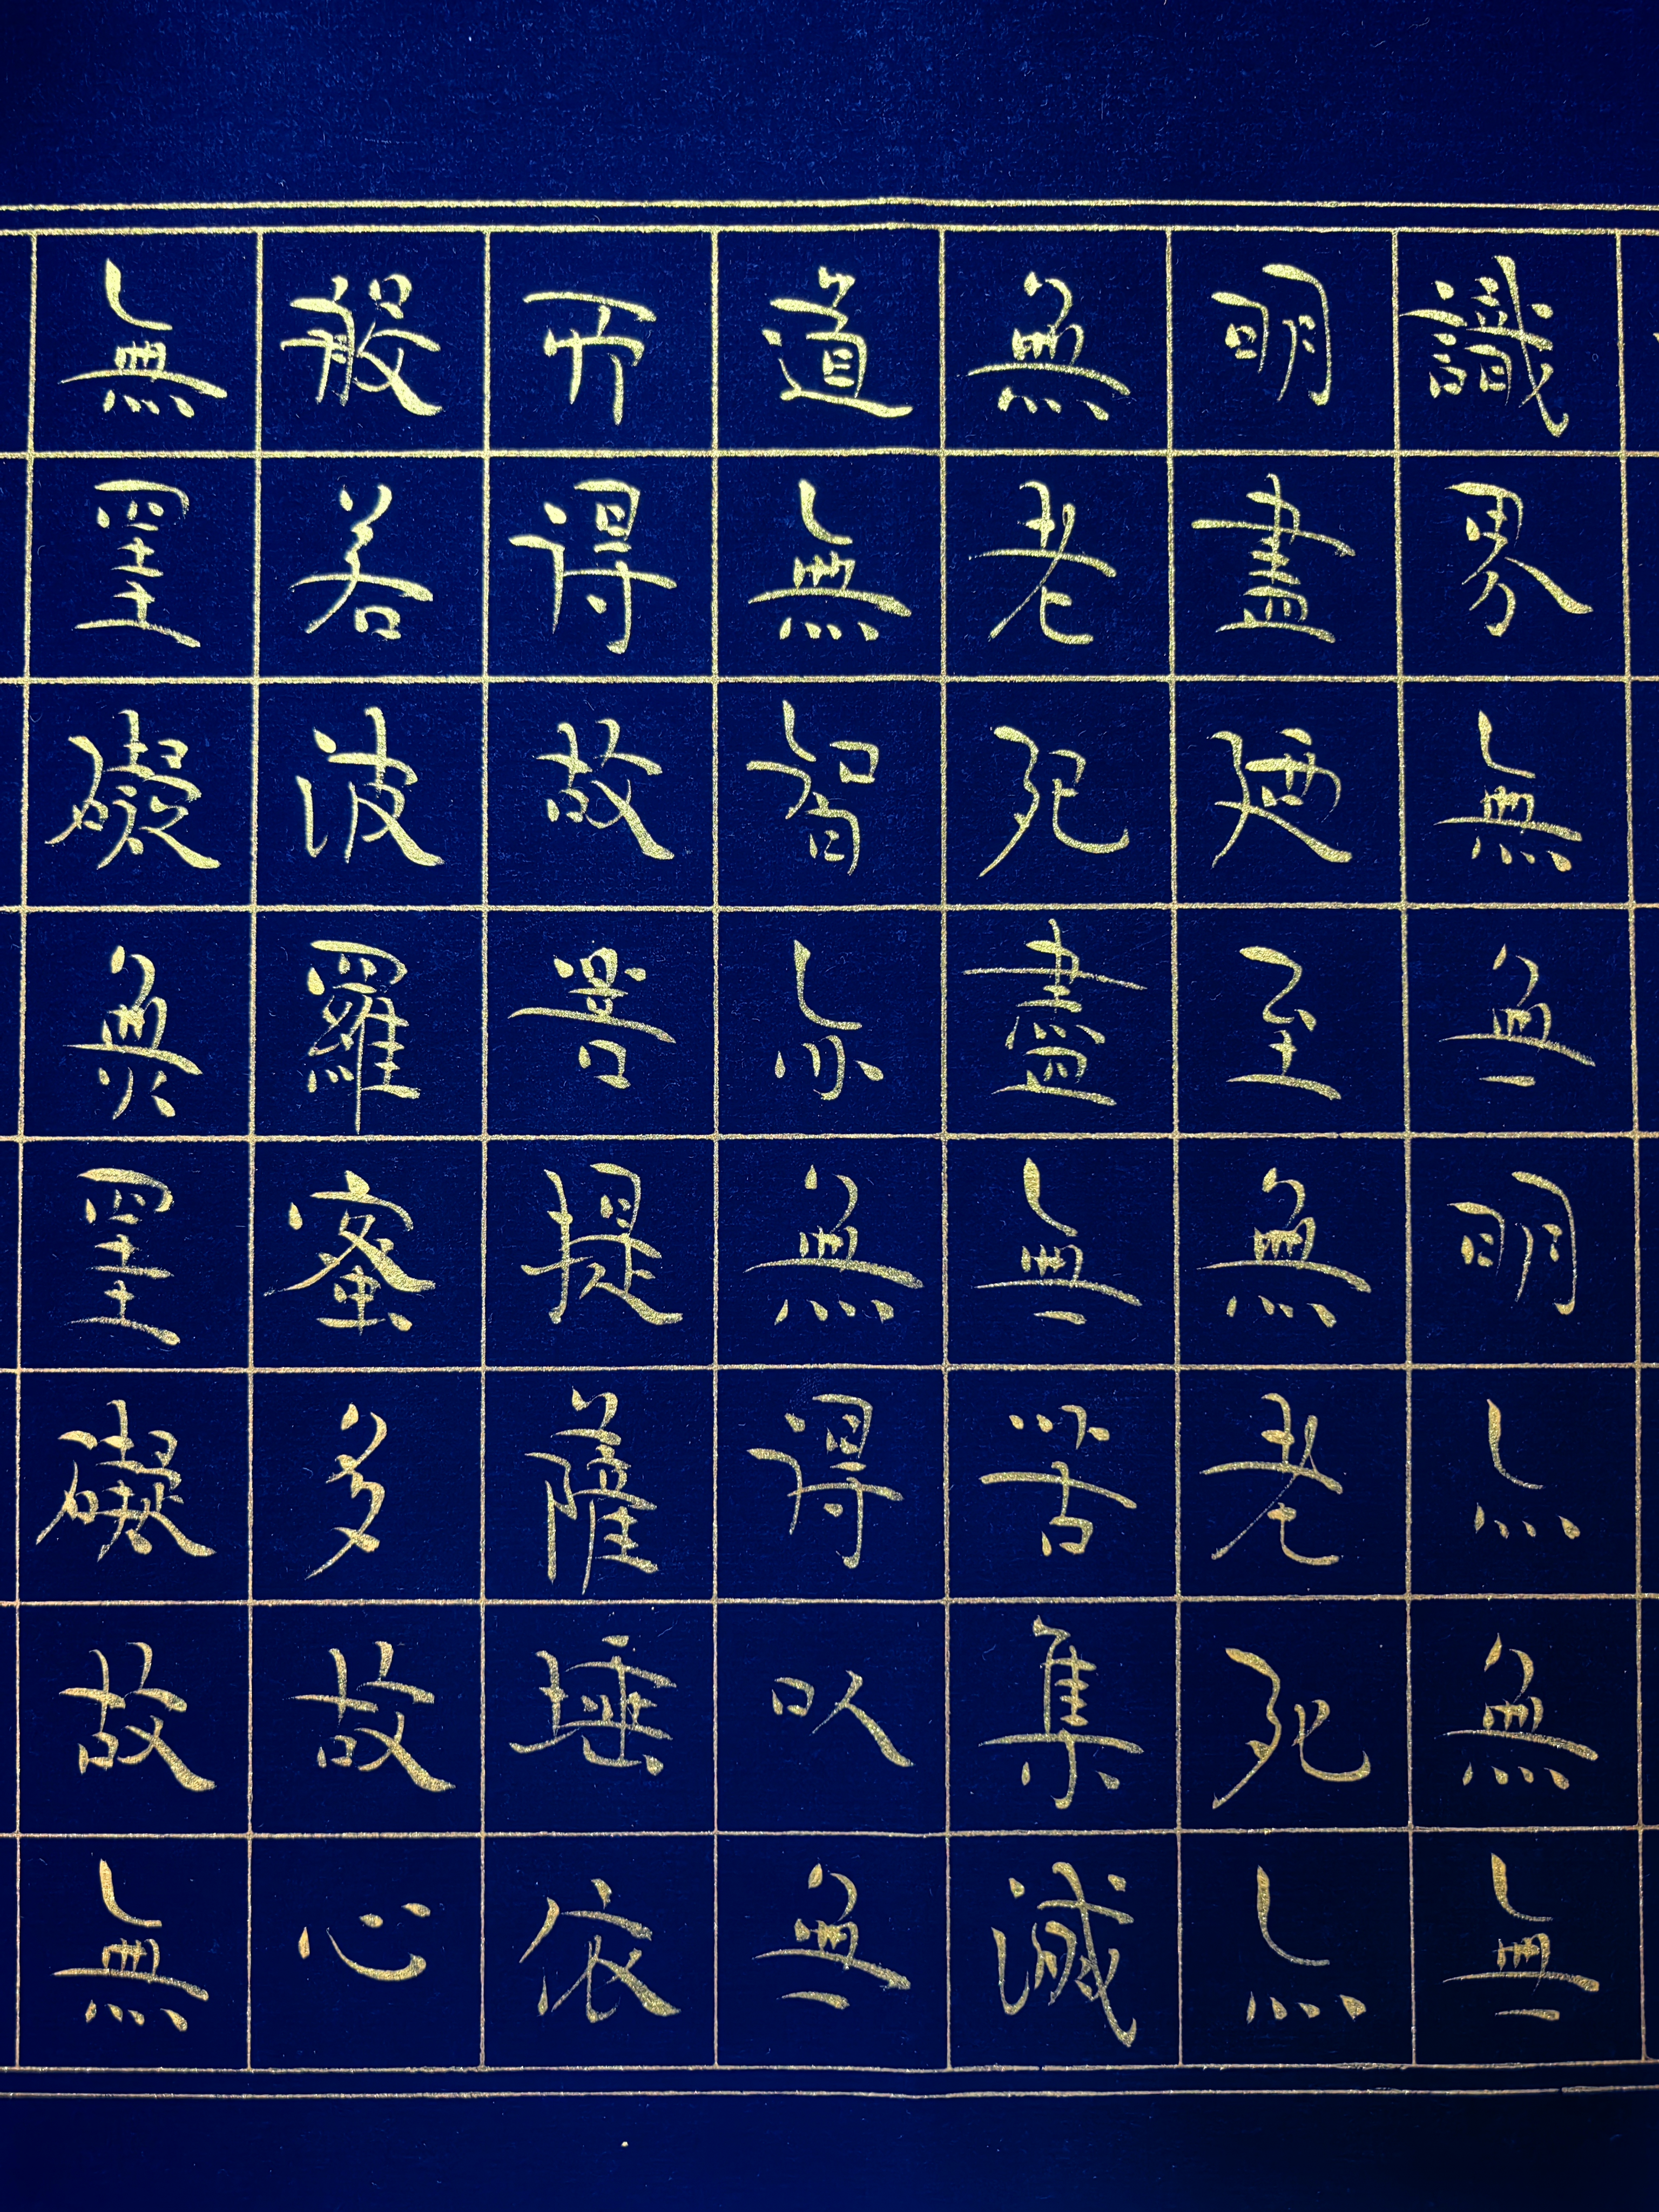 識界無無明亦無無
明盡廼至無老死亦
無老死盡無苦集滅
道無智亦無得以無
所得故菩提薩埵依
般若波羅蜜多故心
無罣礙無罣礙故無